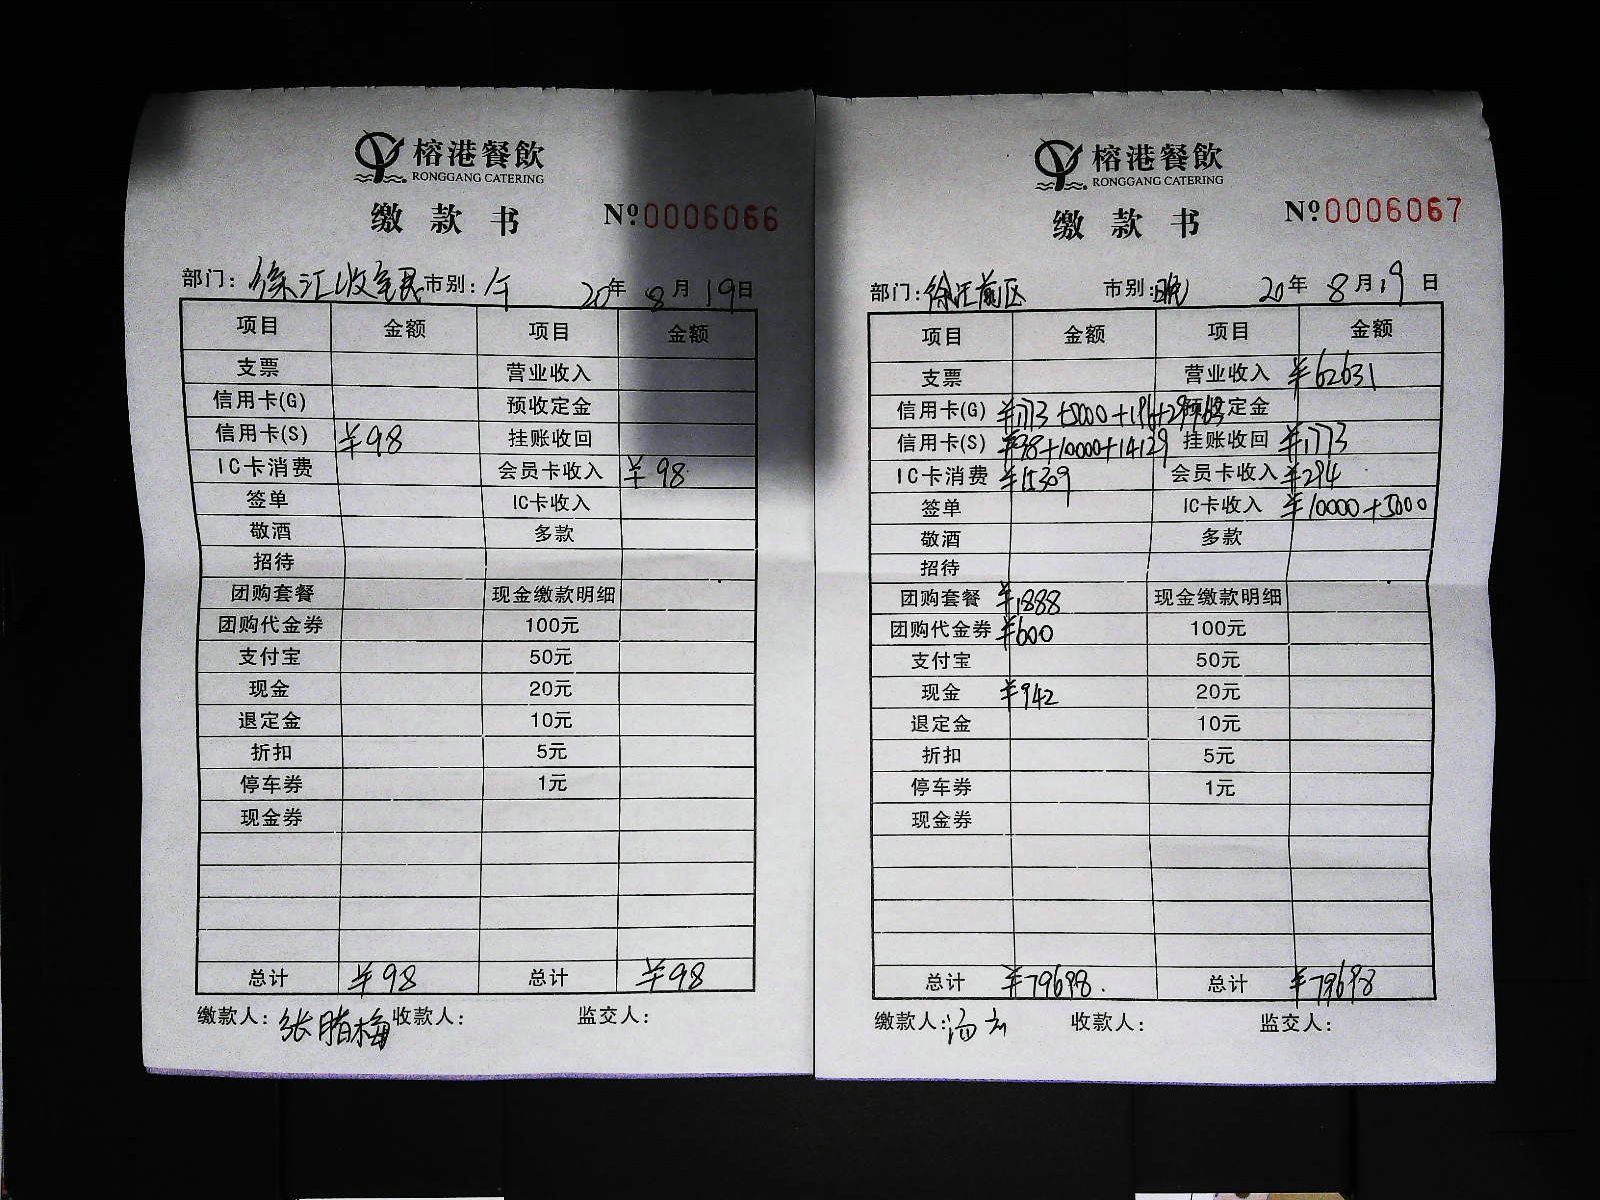 榕港餐飲
RONGGANG CATERING
缴款书 Nº0006066
部门: 徐汇收 市别: 午 20年 8月 19日
项目 金额 项目 金额
支票 营业收入
信用卡(G) 预收定金
信用卡(S) ¥98 挂账收回
IC卡消费 会员卡收入 ¥98
签单 IC卡收入
敬酒 多款
招待
团购套餐 现金缴款明细
团购代金券 100元
支付宝 50元
现金 20元
退定金 10元
折扣 5元
停车券 1元
现金券
总计 ¥98 总计 ¥98
缴款人: 张腊梅 收款人: 监交人:
榕港餐飲
RONGGANG CATERING
缴款书 Nº0006067
部门: 徐汇前区 市别: 晚 20年 8月 19日
项目 金额 项目 金额
支票 营业收入 ¥62631
信用卡(G) ¥1773+5000+196+29763 预收定金
信用卡(S) ¥98+10000+14129 挂账收回 ¥1773
IC卡消费 ¥15309 会员卡收入 ¥294
签单 IC卡收入 ¥10000+5000
敬酒 多款
招待
团购套餐 ¥1888 现金缴款明细
团购代金券 ¥600 100元
支付宝 50元
现金 ¥942 20元
退定金 10元
折扣 5元
停车券 1元
现金券
总计 ¥79698. 总计 ¥79698
缴款人: 汤云 收款人: 监交人: